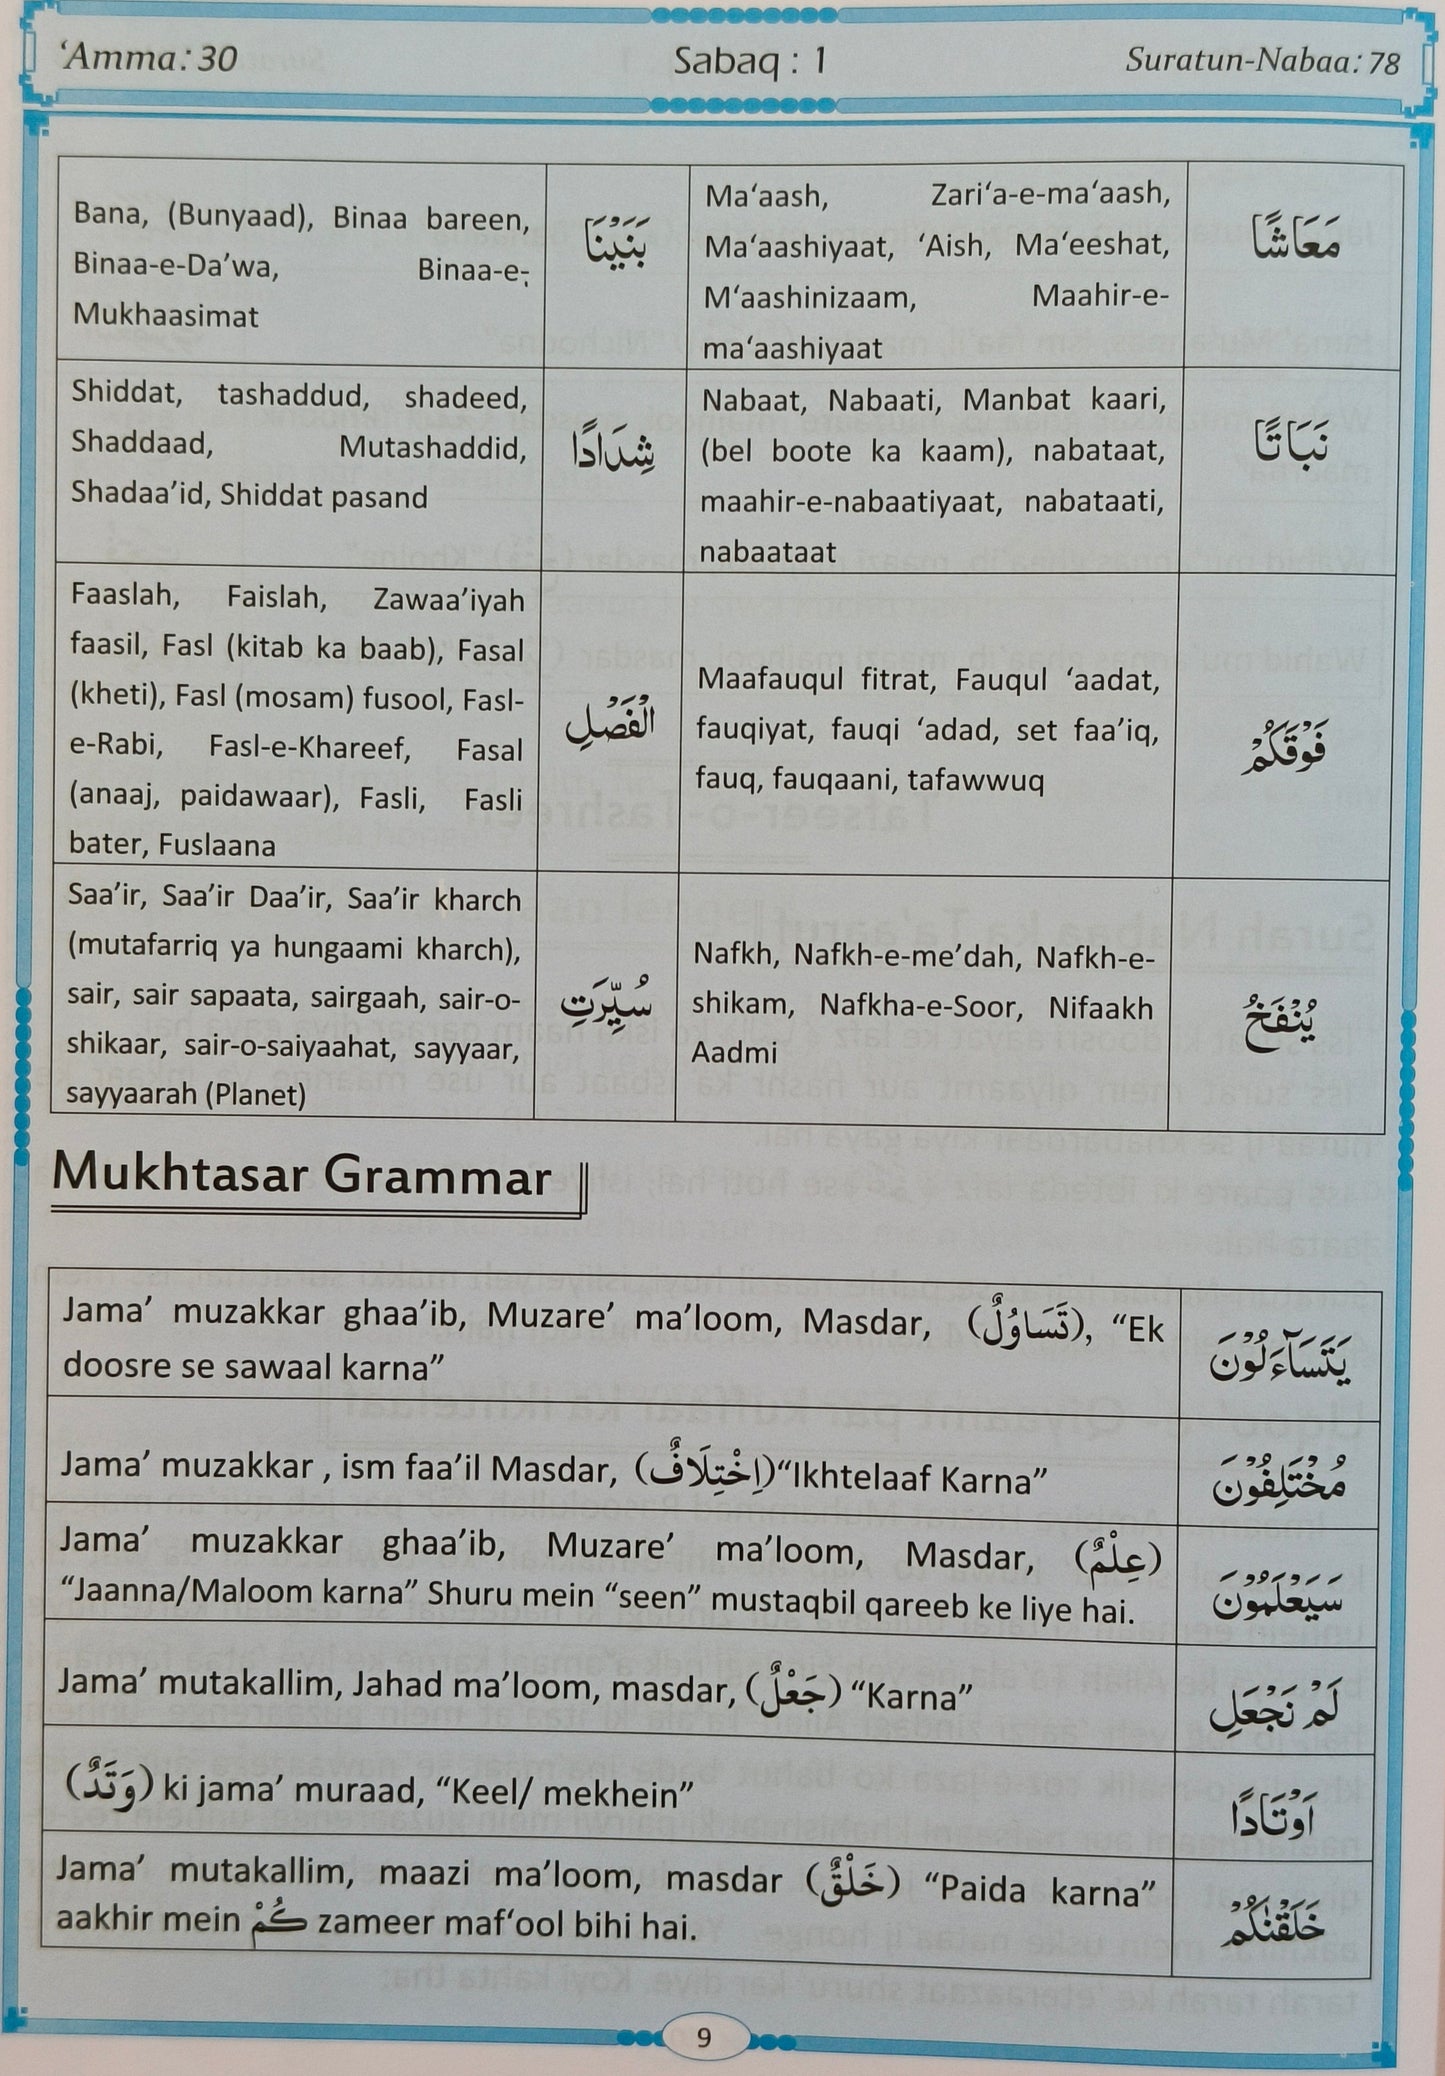 ‘Amma: 30
Sabaq : 1
Suratun-Nabaa: 78
Bana, (Bunyaad), Binaa bareen,
Binaa-e-Da’wa, Binaa-e-
Mukhaasimat
بَنَيْنَا
Ma‘aash, Zari‘a-e-ma‘aash,
Ma‘aashiyaat, ‘Aish, Ma‘eeshat,
M‘aashinizaam, Maahir-e-
ma‘aashiyaat
مَعَاشًا
Shiddat, tashaddud, shadeed,
Shaddaad, Mutashaddid,
Shadaa’id, Shiddat pasand
شِدَادًا
Nabaat, Nabaati, Manbat kaari,
(bel boote ka kaam), nabataat,
maahir-e-nabaatiyaat, nabataati,
nabaataat
نَبَاتًا
Faaslah, Faislah, Zawaa’iyah
faasil, Fasl (kitab ka baab), Fasal
(kheti), Fasl (mosam) fusool, Fasl-
e-Rabi, Fasl-e-Khareef, Fasal
(anaaj, paidawaar), Fasli, Fasli
bater, Fuslaana
الْفَصْلِ
Maafauqul fitrat, Fauqul ‘aadat,
fauqiyat, fauqi ‘adad, set faa’iq,
fauq, fauqaani, tafawwuq
فَوْقَكُمْ
Saa’ir, Saa’ir Daa’ir, Saa’ir kharch
(mutafarriq ya hungaami kharch),
sair, sair sapaata, sairgaah, sair-o-
shikaar, sair-o-saiyaahat, sayyaar,
sayyaarah (Planet)
سُيِّرَتِ
Nafkh, Nafkh-e-me’dah, Nafkh-e-
shikam, Nafkha-e-Soor, Nifaakh
Aadmi
يُنْفَخُ
Mukhtasar Grammar
Jama’ muzakkar ghaa’ib, Muzare’ ma’loom, Masdar, (تَسَاؤُلٌ), “Ek
doosre se sawaal karna”
يَتَسَآءَلُوْنَ
Jama’ muzakkar , ism faa’il Masdar, (اِخْتِلَافٌ)“Ikhtelaaf Karna”
مُخْتَلِفُوْنَ
Jama’ muzakkar ghaa’ib, Muzare’ ma’loom, Masdar, (عِلْمٌ)
“Jaanna/Maloom karna” Shuru mein “seen” mustaqbil qareeb ke liye hai.
سَيَعْلَمُوْنَ
Jama’ mutakallim, Jahad ma’loom, masdar, (جَعْلٌ) “Karna”
لَمْ نَجْعَلِ
(وَتَدٌ) ki jama’ muraad, “Keel/ mekhein”
اَوْتَادًا
Jama’ mutakallim, maazi ma’loom, masdar (خَلْقٌ) “Paida karna”
aakhir mein كُمْ zameer maf‘ool bihi hai.
خَلَقْنٰكُمْ
9